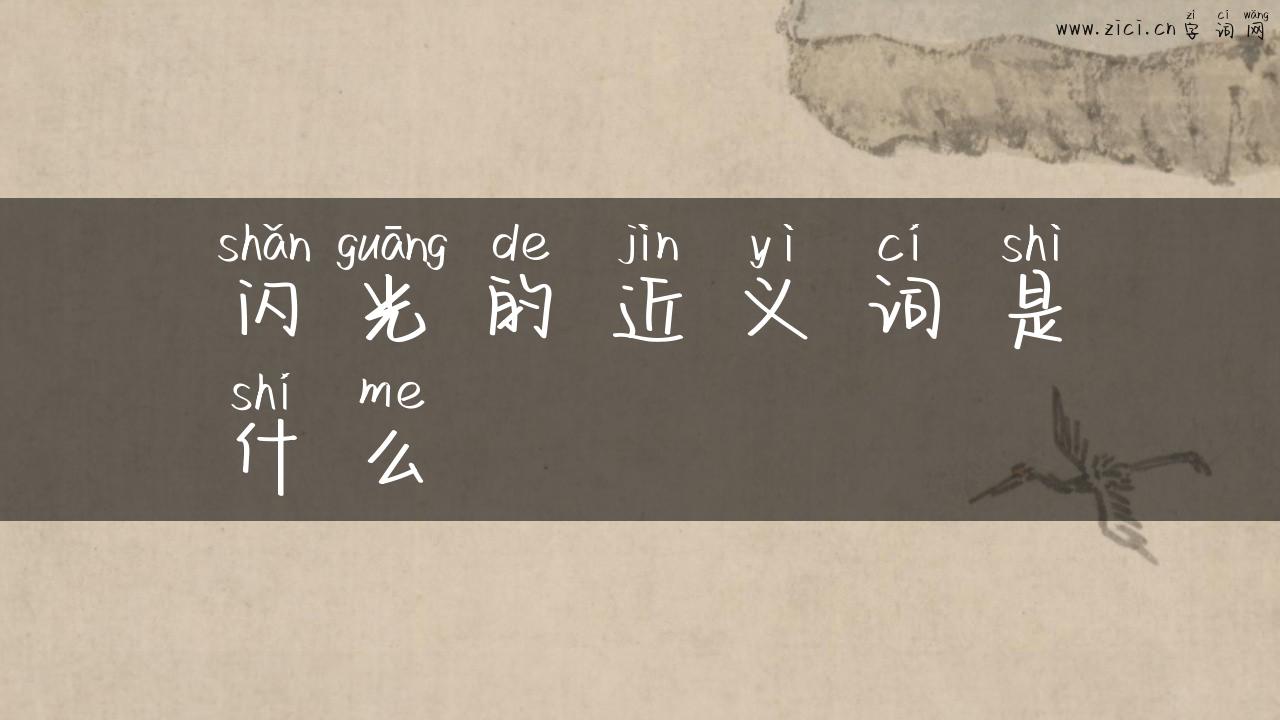 zì cí wǎng
www.zici.cn 字词网
shǎn guāng de jìn yì cí shì
闪光的近义词是
shí me
什么